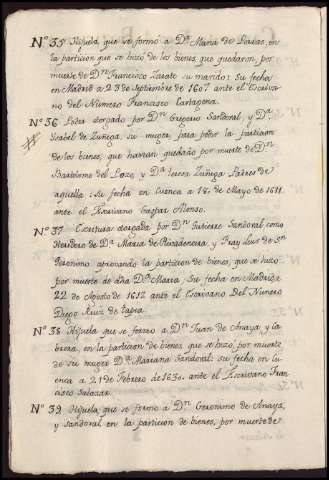 Nº 35 Hijuela que se formó a Dª Maria de Rozas, en
la particion que se hizo de los bienes que quedaron por
muerte de Dn Francisco Zarate su marido: Su fecha
en Madrid a 23 de Septiembre de 1607 ante el Escriva
no del Numero Francisco Cartagena.
Nº 36 otorgado por Dn Gregorio Sandoval, y Dª
Isabel de Zuñiga, su muger para pedir la particion
de los bienes, que havian quedado por muerte de Dn
Bartolome del Pozo, y Dª Teresa Zuñiga Padres de
aquella: Su fecha en Cuenca a 18 de Mayo de 1611
ante el Escrivano Gaspar Alonso.
Nº 37 Escritura otorgada por Dn Gutierre Sandoval como
Heredero de Dª Maria de Rivadeneira y Fray Luis de Sn
Geronimo aprovando la particion de bienes, que se hizo
por muerte de dha Dª Maria, Su fecha en Madrid a
22 de Agosto de 1612 ante el Escrivano Del Numero
Diego Ruiz de tapia.
Nº 38 Hijuela que se formo a Dn Juan de Anaya, y la
brera, en la particion de bienes que se hizo, por muerte
de su muger Dª Mariana Sandoval: su fecha en Cu
enca a 21 de Febrero de 1630. ante el Escrivano Fran
cisco Salazar.
Nº 39 Hijuela que se formo a Dn Geronimo de Anaya,
y Sandoval en la particion de bienes, por muerte de